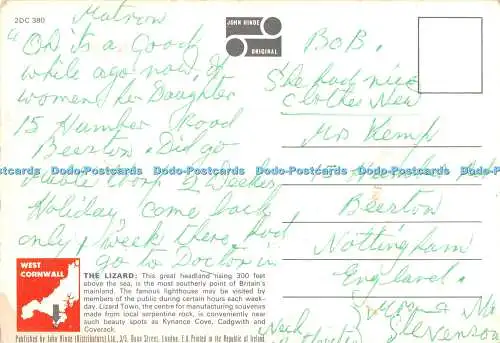 2DC 380
Matron
"Oh its a good
while ago now, If
women her Daughter
15 Humber Road
Beeston. Did go
2 Weeks
Holiday, come back
only 1 week there had
go to Doctor in
JOHN HINDE
ORIGINAL
BOB.
She had nice
clothes New
Mrs Kemp
Beeston
Nottingham
England.
Stevenson
Dodo-Postcards Dodo-Postcards Dodo-Postcards Dodo-Postcards Dodo-Postcards
WEST
CORNWALL
THE LIZARD: This great headland rising 300 feet
above the sea, is the most southerly point of Britain's
mainland. The famous lighthouse may be visited by
members of the public during certain hours each week-
day. Lizard Town, the centre for manufacturing souvenirs
made from local serpentine rock, is conveniently near
such beauty spots as Kynance Cove, Cadgwith and
Coverack.
Published by John Hinde (Distributors) Ltd., Dean Street, London, Printed in the Republic of Ireland